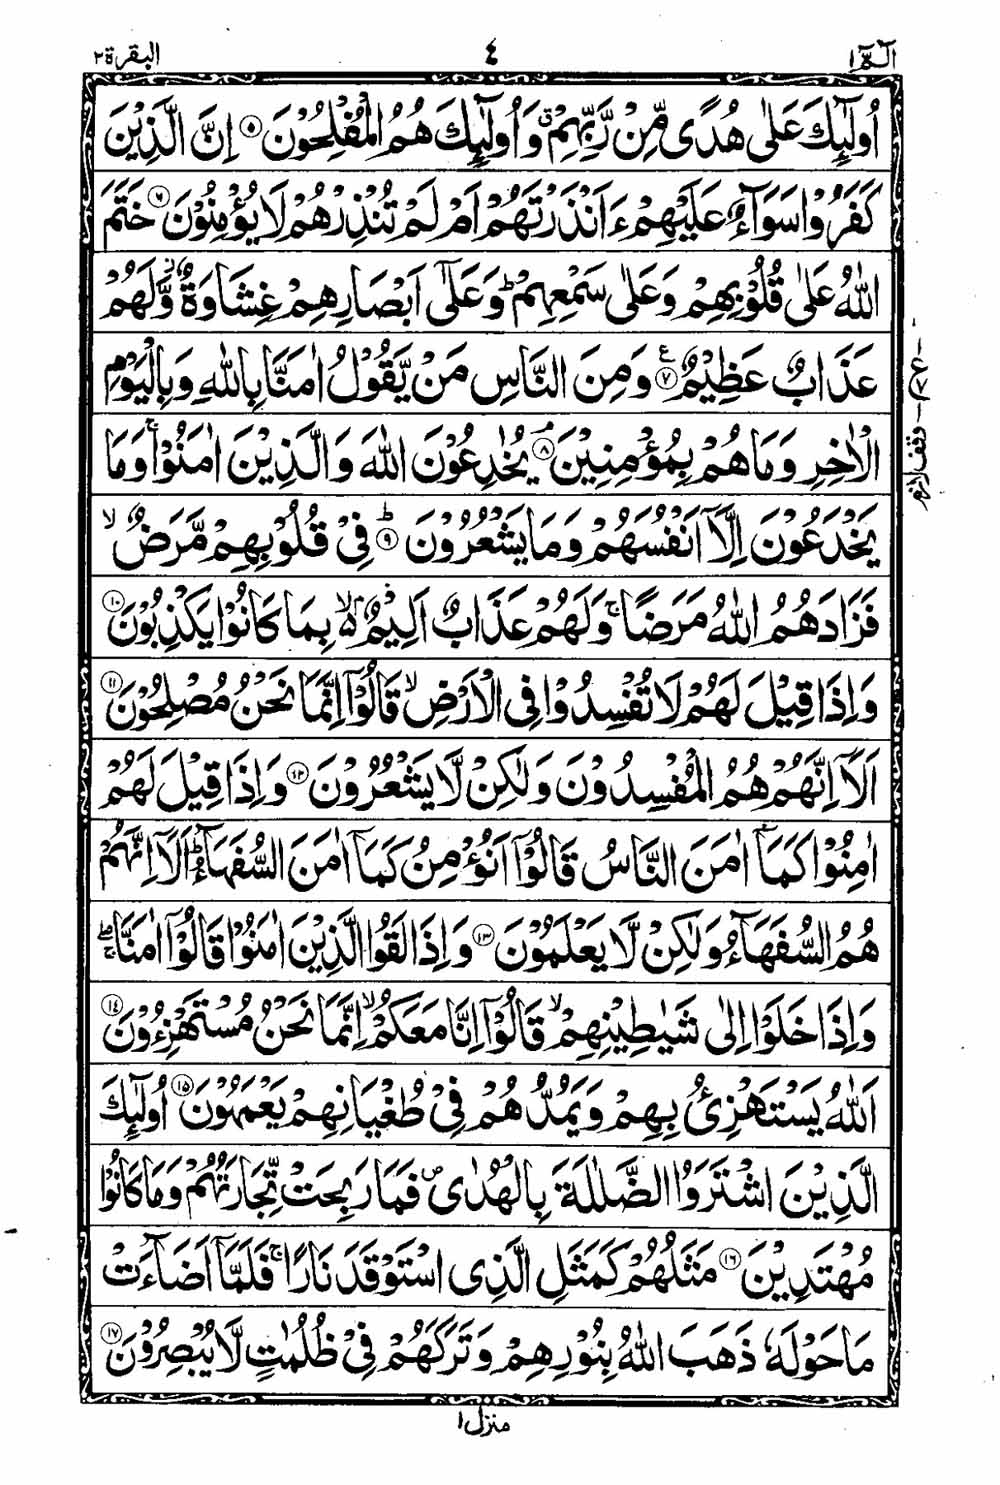 الٓمّٓ ١ ٤ البقرة ٢
اُولٰٓئِكَ عَلٰى هُدًى مِّنْ رَّبِّهِمْ ۗ وَاُولٰٓئِكَ هُمُ الْمُفْلِحُوْنَ ۝٥ اِنَّ الَّذِيْنَ
كَفَرُوْا سَوَآءٌ عَلَيْهِمْ ءَاَنْذَرْتَهُمْ اَمْ لَمْ تُنْذِرْهُمْ لَا يُؤْمِنُوْنَ ۝٦ خَتَمَ
اللّٰهُ عَلٰى قُلُوْبِهِمْ وَعَلٰى سَمْعِهِمْ ؕ وَعَلٰٓى اَبْصَارِهِمْ غِشَاوَةٌ ۫ وَّلَهُمْ
عَذَابٌ عَظِيْمٌ ۝٧ ع وَمِنَ النَّاسِ مَنْ يَّقُوْلُ اٰمَنَّا بِاللّٰهِ وَبِالْيَوْمِ
الْاٰخِرِ وَمَا هُمْ بِمُؤْمِنِيْنَ ۝٨ۘ يُخٰدِعُوْنَ اللّٰهَ وَالَّذِيْنَ اٰمَنُوْا ۚ وَمَا
يَخْدَعُوْنَ اِلَّآ اَنْفُسَهُمْ وَمَا يَشْعُرُوْنَ ۝٩ؕ فِيْ قُلُوْبِهِمْ مَّرَضٌ ۙ
فَزَادَهُمُ اللّٰهُ مَرَضًا ۚ وَلَهُمْ عَذَابٌ اَلِيْمٌ ۢ ۙ بِمَا كَانُوْا يَكْذِبُوْنَ ۝١٠
وَاِذَا قِيْلَ لَهُمْ لَا تُفْسِدُوْا فِي الْاَرْضِ ۙ قَالُوْٓا اِنَّمَا نَحْنُ مُصْلِحُوْنَ ۝١١
اَلَآ اِنَّهُمْ هُمُ الْمُفْسِدُوْنَ وَلٰكِنْ لَّا يَشْعُرُوْنَ ۝١٢ وَاِذَا قِيْلَ لَهُمْ
اٰمِنُوْا كَمَآ اٰمَنَ النَّاسُ قَالُوْٓا اَنُؤْمِنُ كَمَآ اٰمَنَ السُّفَهَآءُ ؕ اَلَآ اِنَّهُمْ
هُمُ السُّفَهَآءُ وَلٰكِنْ لَّا يَعْلَمُوْنَ ۝١٣ وَاِذَا لَقُوا الَّذِيْنَ اٰمَنُوْا قَالُوْٓا اٰمَنَّا ۚۖ
وَاِذَا خَلَوْا اِلٰى شَيٰطِيْنِهِمْ ۙ قَالُوْٓا اِنَّا مَعَكُمْ ۙ اِنَّمَا نَحْنُ مُسْتَهْزِءُوْنَ ۝١٤
اَللّٰهُ يَسْتَهْزِئُ بِهِمْ وَيَمُدُّهُمْ فِيْ طُغْيَانِهِمْ يَعْمَهُوْنَ ۝١٥ اُولٰٓئِكَ
الَّذِيْنَ اشْتَرَوُا الضَّلٰلَةَ بِالْهُدٰى ۪ فَمَا رَبِحَتْ تِّجَارَتُهُمْ وَمَا كَانُوْا
مُهْتَدِيْنَ ۝١٦ مَثَلُهُمْ كَمَثَلِ الَّذِى اسْتَوْقَدَ نَارًا ۚ فَلَمَّآ اَضَآءَتْ
مَا حَوْلَهٗ ذَهَبَ اللّٰهُ بِنُوْرِهِمْ وَتَرَكَهُمْ فِيْ ظُلُمٰتٍ لَّا يُبْصِرُوْنَ ۝١٧
وقف لازم
منزل ١